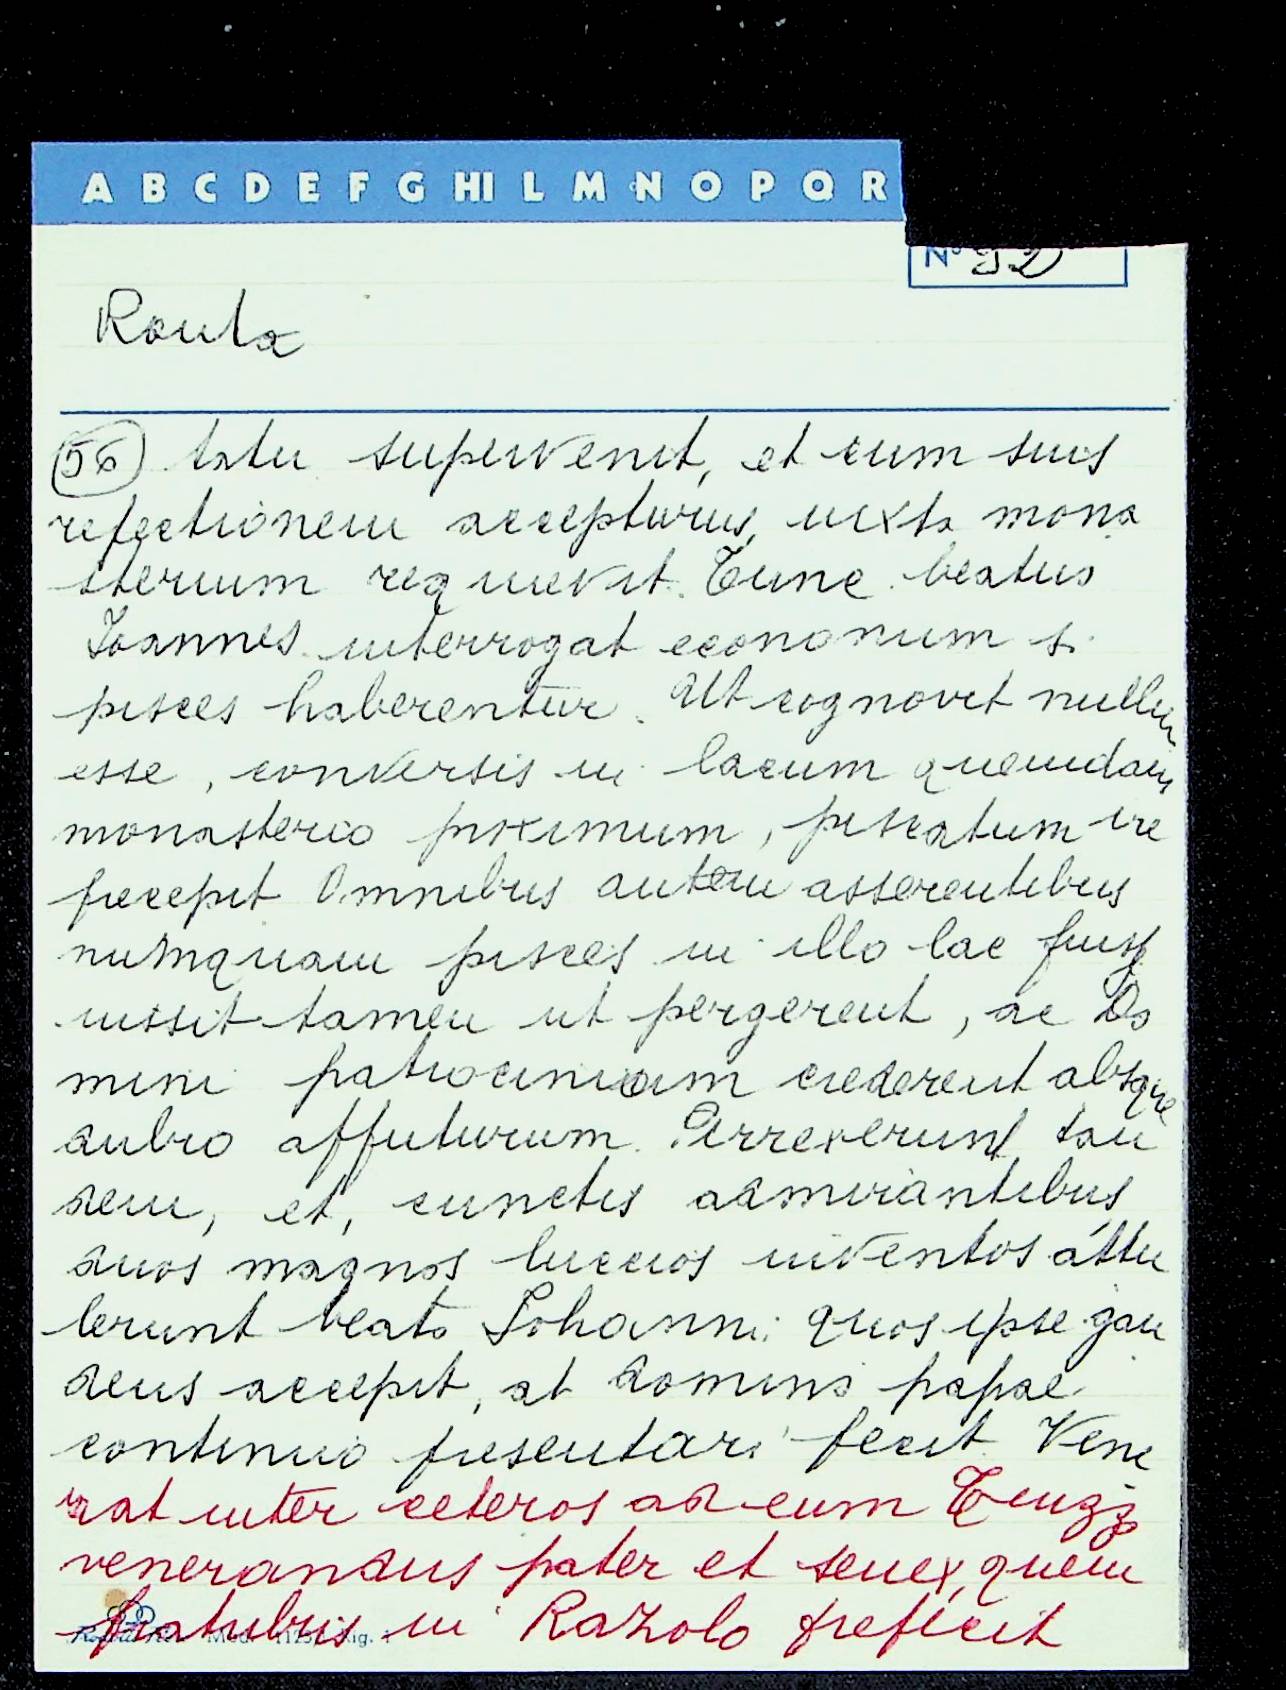 A B C D E F G HI L M N O P Q R
Nº 52
Roula
(56) tatu supervenit, et cum suis
refectionem accepturus, iuxta mona
sterium requievit. Tunc beatus
Ioannes interrogat economum si
pisces haberentur. Ut cognovit nullum
esse, conversis in lacum quemdam
monasterio proximum, piscatum ire
precepit Omnibus autem asserentibus
numquam pisces in illo lac fuiss
iussit tamen ut pergerent, ac Do
mini patrocinium crederent absque
dubio affuturum. Perrexerunt tan
dem, et, cunctis admirantibus
duos magnos luccios inventos attu
lerunt beato Iohanni: quos ipse gau
dens accepit, at domino papae
continuo presentari fecit. Vene
rat inter ceteros ad eum Teuzz
venerandus pater et senex, quem
fratribus in Razolo prefecit
Mod. Rig.